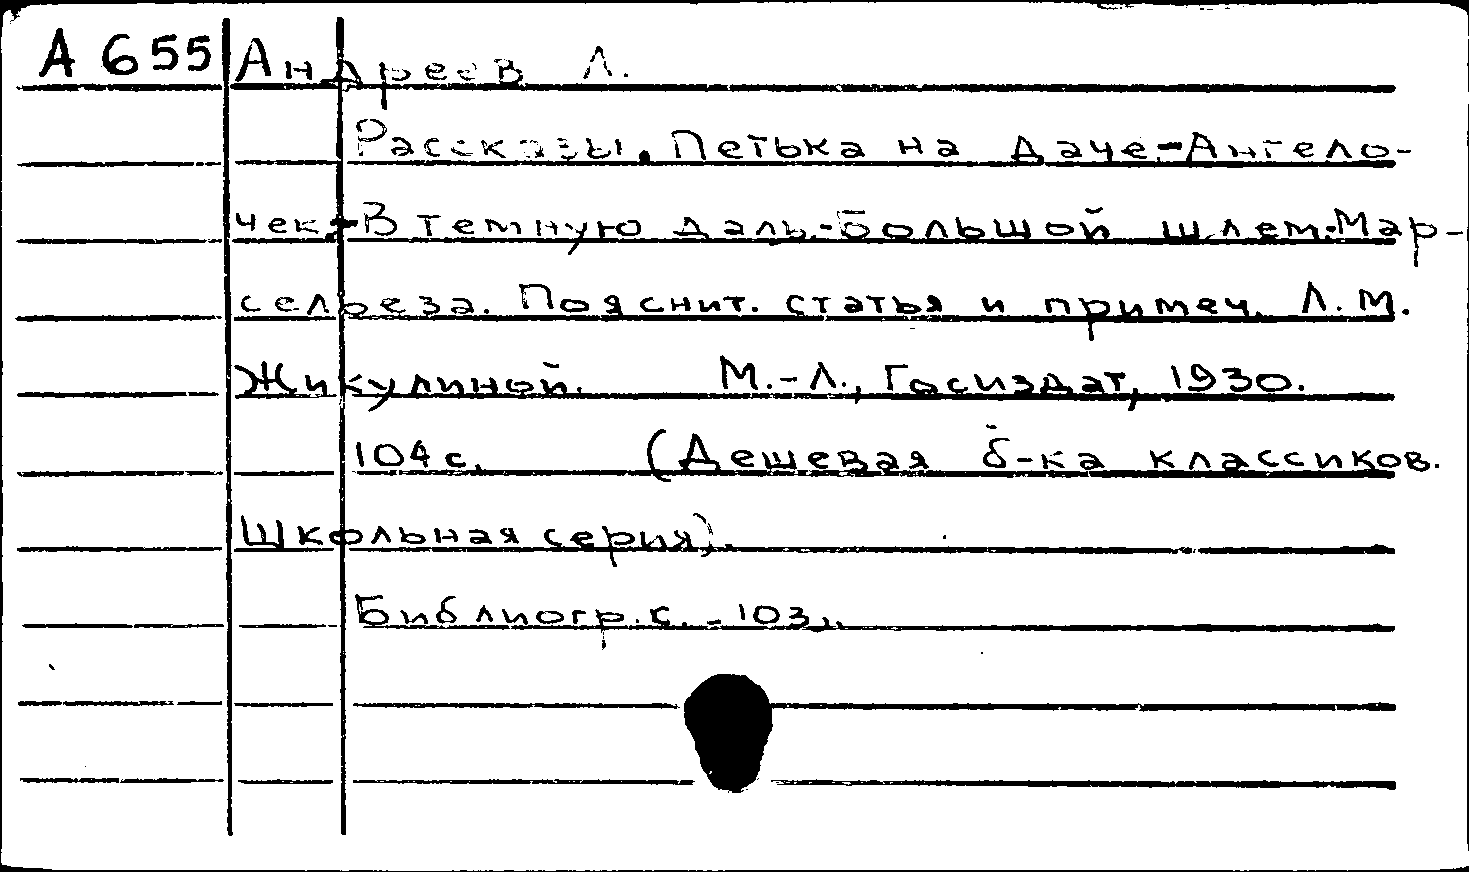 А 655 Андреев Л.
Рассказы. Петька на даче.-Ангело-
чек.-В темную даль.-Большой шлем.-Мар-
сельеза. Пояснит. статья и примеч. Л.М.
Жикулиной. М.-Л., Госиздат, 1930.
104 с. (Дешевая б-ка классиков.
Школьная серия).
Библиогр. с. - 103.